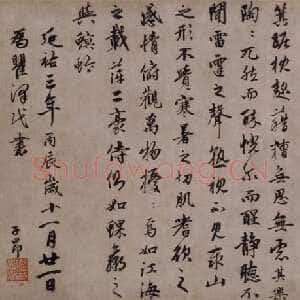 箕踞枕麴藉糟無思無慮其樂
陶〻兀然而醉恍尔而醒靜聽不
聞雷霆之聲熟視不見泰山
之形不覺寒暑之切肌嗜欲之
感情俯觀萬物擾〻焉如江海
之載萍二豪侍側如蜾蠃之
與螟蛉
延祐三年丙辰歲十一月廿一日
為瞿澤民書
子昂